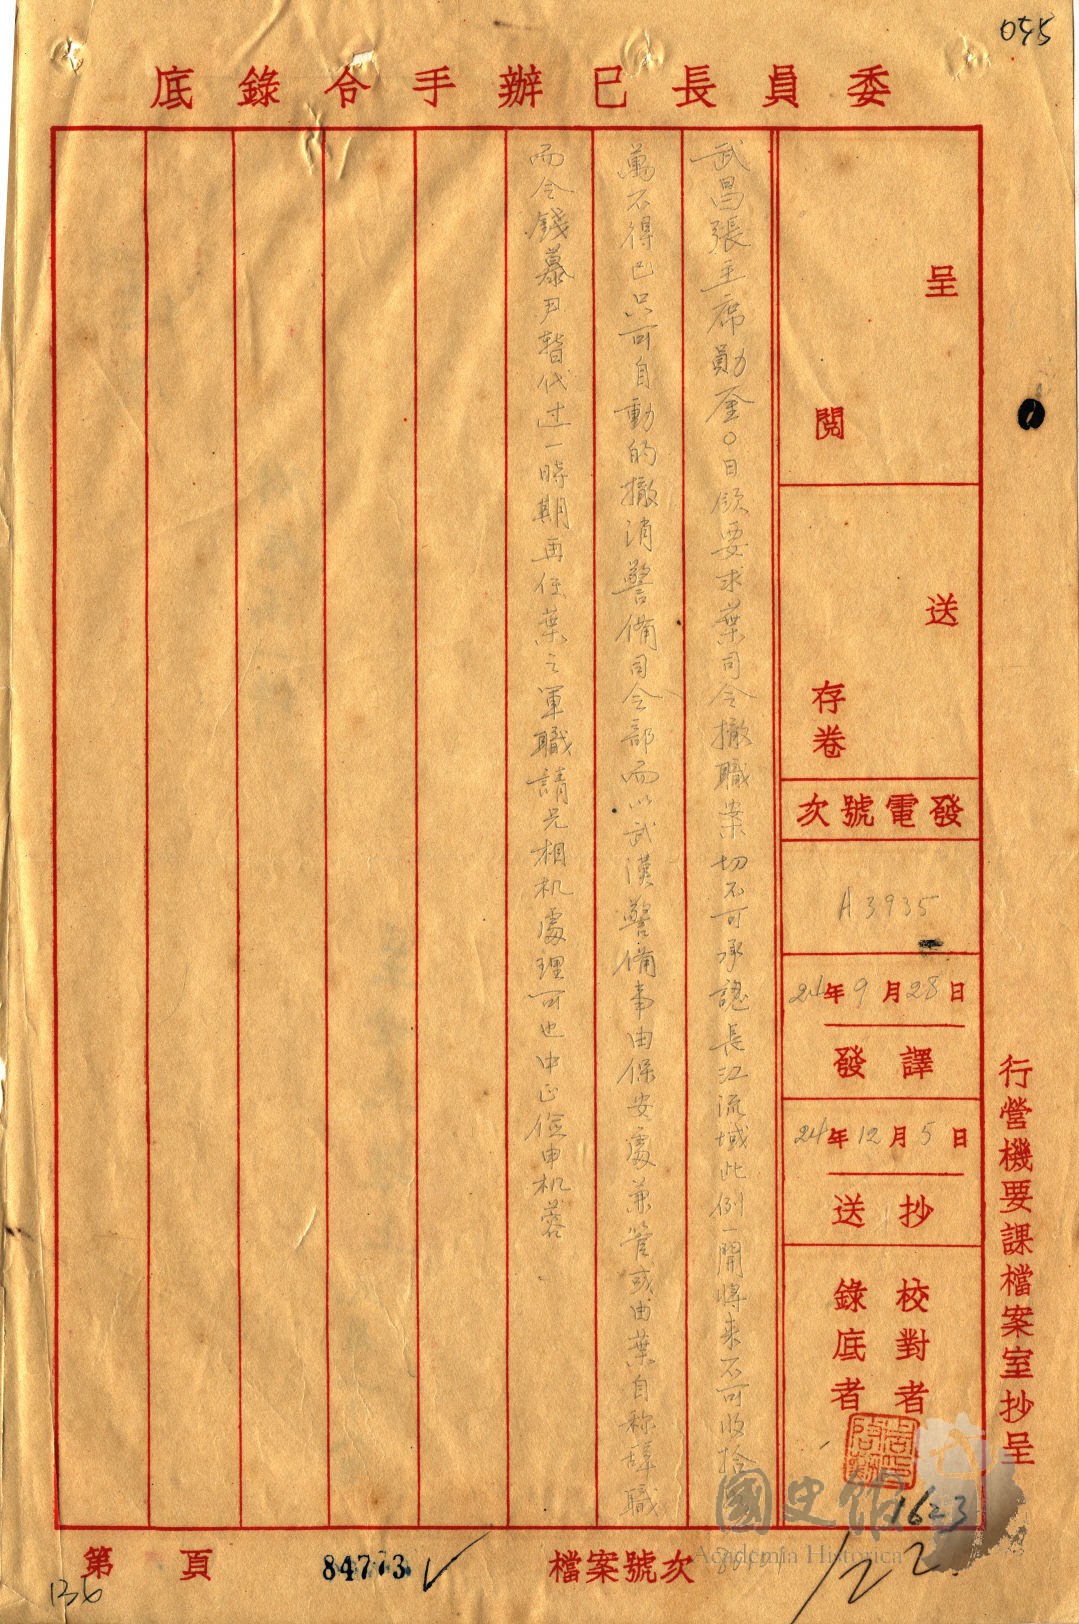 055
委員長已辦手令錄底
呈
閱
送
存卷
發電號次
A3935
24年9月28日
譯發
24年12月5日
抄送
校對者
錄底者
行營機要課檔案室抄呈
武昌張主席勛鑒○日領要求葉司令撤職案切不可承認長江流域此例一開將來不可收拾
萬不得已只可自動的撤消警備司令部而以武漢警備事由保安處兼管或由葉自稱辭職
而令錢慕尹暫代過一時期再任葉之軍職請兄相机處理可也中正儉申机蓉
國史館
Academia Historica
1623
122
檔案號次
84773
第頁
136